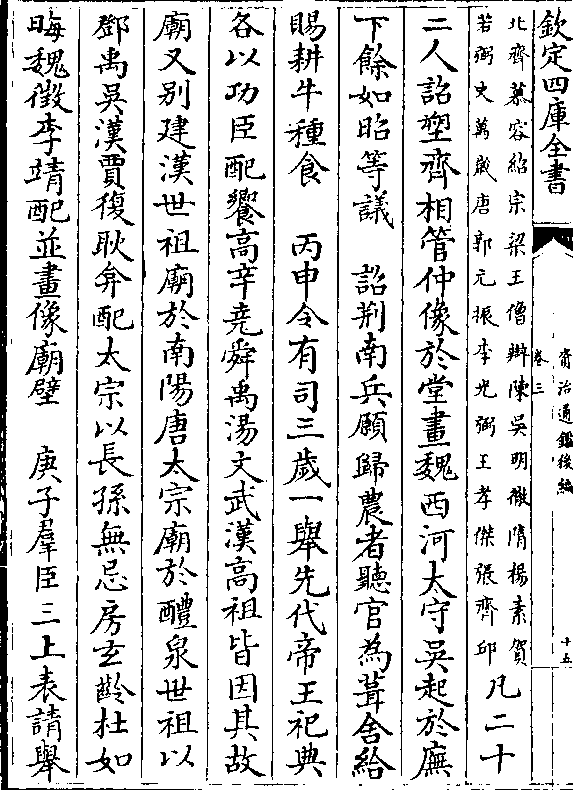 欽定四庫全書
資治通鑑後編
卷三
十五
北齊慕容紹宗梁王僧辯陳吳明徹隋楊素賀
若弼史萬歲唐郭元振李光弼王孝傑張齊邱
凡二十
二人詔塑齊相管仲像於堂畫魏西河太守吳起於廡
下餘如昭等議　詔荆南兵願歸農者聽官為葺舍給
賜耕牛種食　丙申令有司三歲一舉先代帝王祀典
各以功臣配饗高辛堯舜禹湯文武漢高祖皆因其故
廟又别建漢世祖廟於南陽唐太宗廟於醴泉世祖以
鄧禹吳漢賈復耿弇配太宗以長孫無忌房玄齡杜如
晦魏徵李靖配並畫像廟壁　庚子羣臣三上表請舉